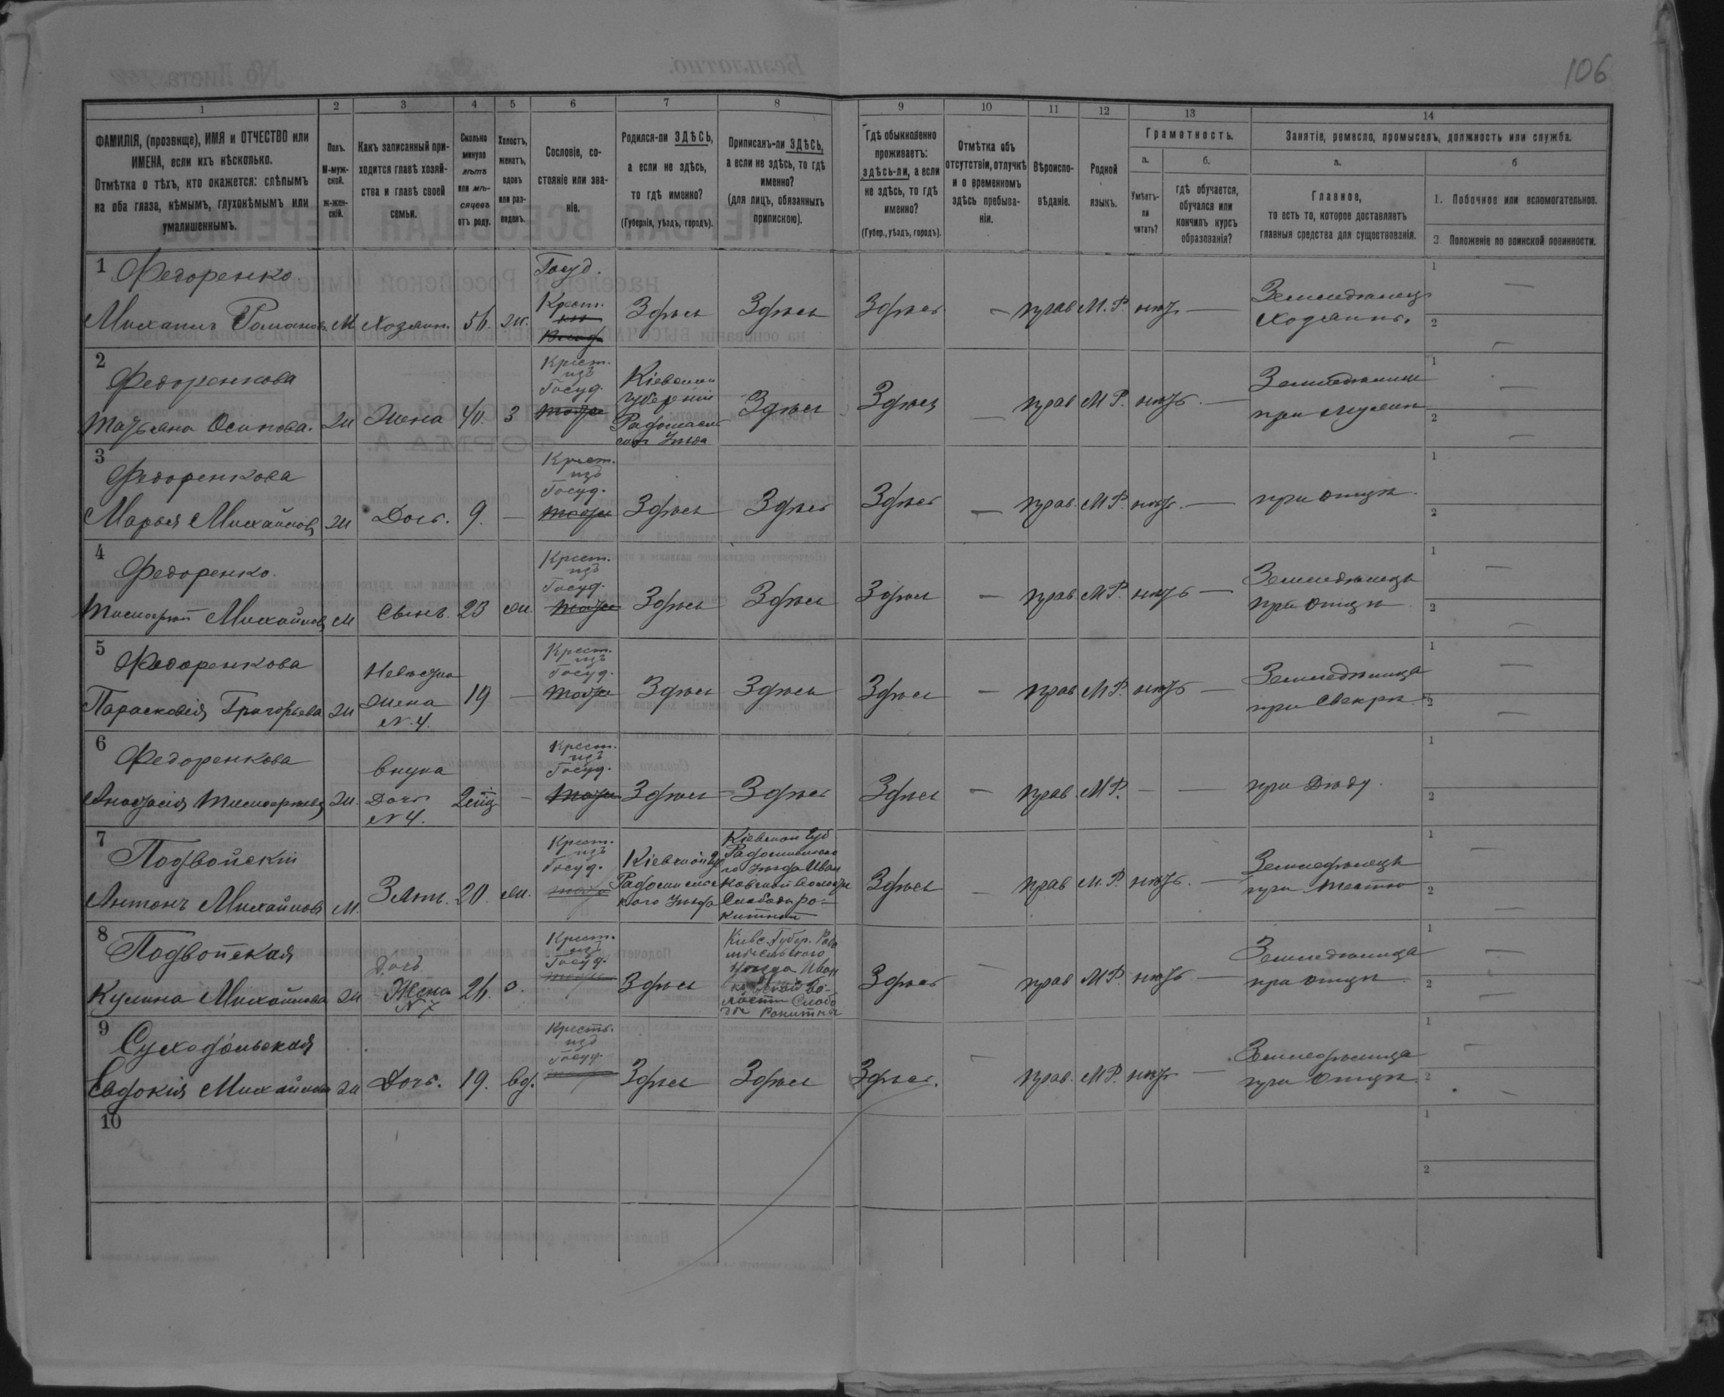 106
1 2 3 4 5 6 7 8 9 10 11 12 13 14
ФАМИЛІЯ, (прозвище), ИМЯ и ОТЧЕСТВО или
ИМЕНА, если ихъ нѣсколько.
Отмѣтка о тѣхъ, кто окажется: слѣпымъ
на оба глаза, нѣмымъ, глухонѣмымъ или
умалишеннымъ.
Полъ.
М-муж-
ской.
ж-жен-
скій.
Какъ записанный при-
ходится главѣ хозяй-
ства и главѣ своей
семьи.
Сколько
минуло
лѣтъ
или мѣ-
сяцевъ
отъ роду.
Холостъ,
женатъ,
вдовъ
или раз-
веденъ.
Сословіе, со-
стояніе или зва-
ніе.
Родился-ли ЗДѢСЬ,
а если не здѣсь,
то гдѣ именно?
(Губернія, уѣздъ, городъ).
Приписанъ-ли ЗДѢСЬ,
а если не здѣсь, то гдѣ
именно?
(для лицъ, обязанныхъ
припискою).
Гдѣ обыкновенно
проживаетъ:
здѣсь-ли, а если
не здѣсь, то гдѣ
именно?
(Губер., уѣздъ, городъ).
Отмѣтка объ
отсутствіи, отлучкѣ
и о временномъ
здѣсь пребыва-
ніи.
Вѣроиспо-
вѣданіе.
Родной
языкъ.
Грамотность.
а.
Умѣетъ-
ли
читать?
б.
гдѣ обучается,
обучался или
кончилъ курсъ
образованія?
Занятіе, ремесло, промыселъ, должность или служба.
а.
Главное,
то есть то, которое доставляетъ
главныя средства для существованія.
б
1. Побочное или вспомогательное.
2 Положеніе по воинской повинности.
1 Федоренко
Михаилъ Романовъ М Хозяинъ. 56. ж.
Госуд.
Крест.
Здѣсь Здѣсь Здѣсь — прав М. Р. нѣтъ —
Земледѣлецъ
хозяинъ.
1 —
2 —
2 Федоренкова
Татьяна Осипова. ж Жена 40. З
Крест.
изъ
Госуд.
Кіевской
губерніи
Радомысль
скаго Уѣзда
Здѣсь Здѣсь — прав М Р. нѣтъ. —
Земледѣлица
при мужѣ
1 —
2 —
3 Федоренкова
Марья Михайлова ж Дочь. 9. —
Крест.
изъ
Госуд.
Здѣсь Здѣсь Здѣсь — прав. М Р. нѣтъ. — при отцѣ
1
2
4 Федоренко.
Тимофѣй Михайловъ М сынъ. 23 ж
Крест.
изъ
Госуд.
Здѣсь Здѣсь Здѣсь — прав М Р. нѣтъ —
Земледѣлецъ
при отцѣ
1 —
2 —
5 Федоренкова
Парасковія Григорьева ж
Невѣстка
жена
N. 4.
19 —
Крест.
изъ
Госуд.
Здѣсь Здѣсь Здѣсь — прав М Р. нѣтъ —
Земледѣлица
при свекрѣ
1 —
2 —
6 Федоренкова
Анастасія Тимофѣева ж.
внука
Дочь
N 4.
—
Крест.
изъ
Госуд.
Здѣсь Здѣсь Здѣсь — прав М Р. — — при Дѣду.
1
2
7 Подвойскій
Антонъ Михайловъ М. Зять. 20. ж.
Крест.
изъ
Госуд.
Кіевской Губ
Радомысльс
каго Уѣзда
Кіевской Губ
Радомысльска
го Уѣзда Иван
ковской волости
Слобода ро-
китной
Здѣсь — прав М. Р. нѣтъ. —
Земледѣлецъ
при тестю
1 —
2 —
8 Подвойская
Кулина Михайлова ж
Дочь
Жена
N 7
26. з.
Крест.
изъ
Госуд.
Здѣсь
Кіевс. Губер. Радо
мысльского
Уѣзда Иван
ковской во-
лости Слобо
ды Рокитна
Здѣсь — прав М Р. нѣтъ —
Земледѣлица
при отцѣ
1 —
2 —
9 Суходольская
Евдокія Михайлова ж Дочь. 19. вд.
Крестъ.
изъ
Госуд.
Здѣсь Здѣсь Здѣсь. — прав. М Р. нѣтъ —
Земледѣлица
при отцѣ
1 —
2 —
10
1
2